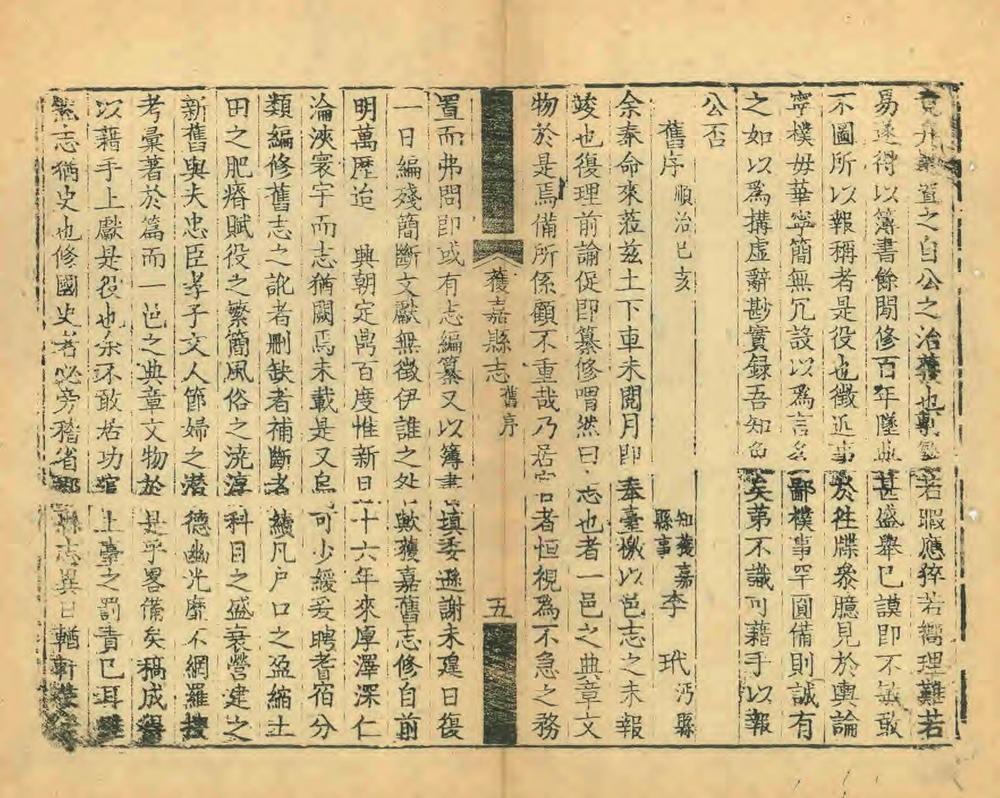 置之自公之治獲也若暇應猝若嚮理難若
易遂得以簿書餘閒修百年墜典甚盛舉已謨即不敏敢
不圖所以報稱者是役也徵近事於往牒衆臆見於輿論
寧樸毋華寧簡無冗設以為言多鄙樸事罕圓備則誠有
之如以為構虛辭尠實録吾知免矣第不識可藉手以報
公否
舊序 順治己亥 知獲嘉縣事李玳 沔縣
余奉命來蒞兹土下車未閱月即奉臺檄以邑志之未報
竣也復理前論促即纂修喟然曰志也者一邑之典章文
物於是焉備所係顧不重哉乃居官者恒視為不急之務
獲嘉縣志 舊序 五
置而弗問即或有志編纂又以簿書填委遜謝未遑日復
一日編殘簡斷文獻無徵伊誰之處歟獲嘉舊志修自前
明萬歷迨 興朝定鼎百度惟新日十六年來厚澤深仁
淪浹寰宇而志猶闕焉未載是又烏可少緩爰聘耆宿分
類編修舊志之訛者刪缺者補斷者續凡戶口之盈縮土
田之肥瘠賦役之繁簡風俗之澆淳科目之盛衰營建之
新舊與夫忠臣孝子文人節婦之潛德幽光靡不網羅搜
考彙著於篇而一邑之典章文物於是乎畧備矣稿成得
以藉手上獻是役也余不敢居功竊上臺之罰責已耳雖
然志猶史也修國史者必旁稽省郡志異日輶軒